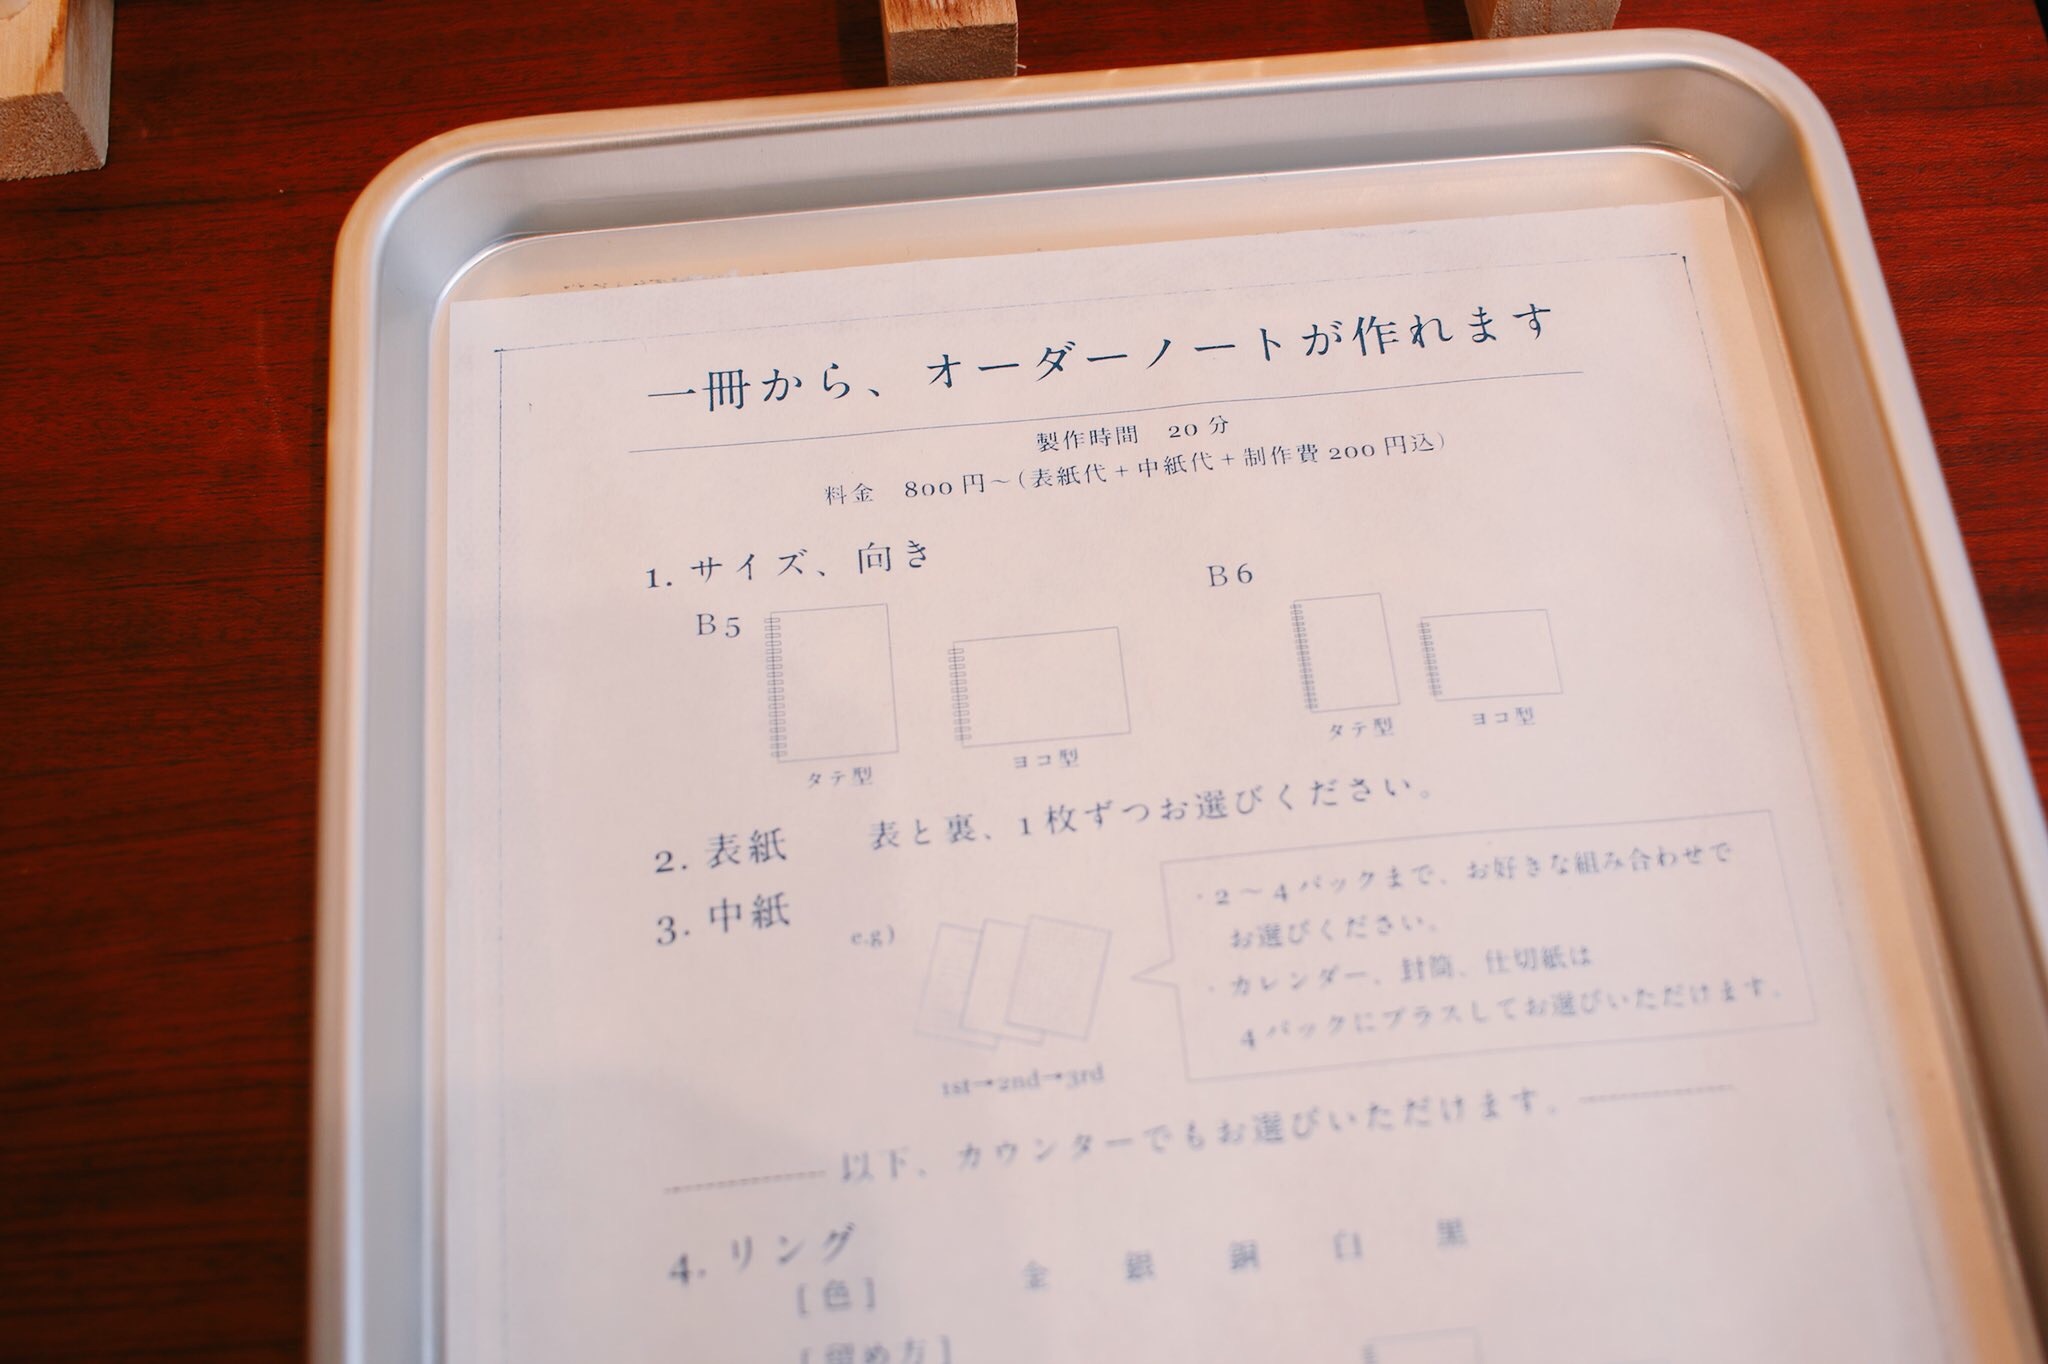 一冊から、オーダーノートが作れます
製作時間　20分
料金　800円〜（表紙代+中紙代+制作費200円込）
1. サイズ、向き
B5
タテ型
ヨコ型
B6
タテ型
ヨコ型
2. 表紙　表と裏、1枚ずつお選びください。
3. 中紙
e.g)
1st→2nd→3rd
・2〜4パックまで、お好きな組み合わせで
お選びください。
・カレンダー、封筒、仕切紙は
4パックにプラスしてお選びいただけます。
以下、カウンターでもお選びいただけます。
4. リング
[色]　金　銀　銅　白　黒
[留め方]